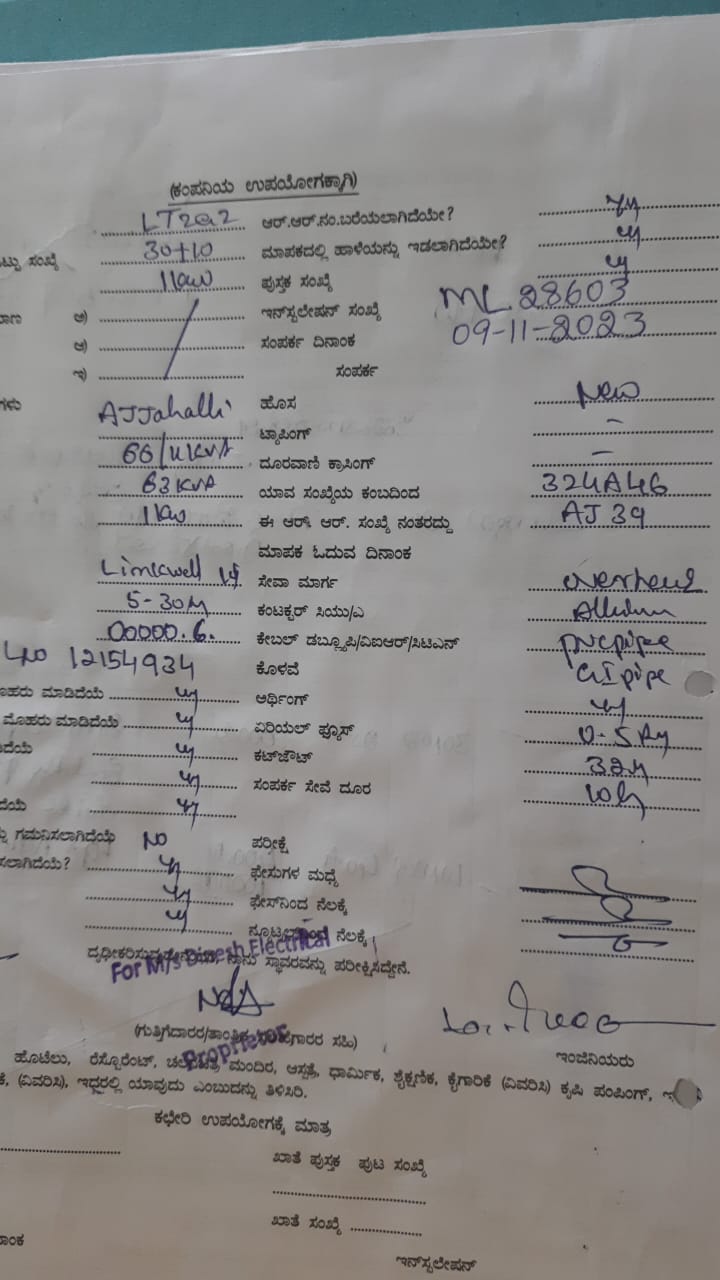 (ಕಂಪನಿಯ ಉಪಯೋಗಕ್ಕಾಗಿ)
LT2a2 ಆರ್.ಆರ್.ನಂ.ಬರೆಯಲಾಗಿದೆಯೇ?
ಟ್ಟು ಸಂಖ್ಯೆ 30+10 ಮಾಪಕದಲ್ಲಿ ಹಾಳೆಯನ್ನು ಇಡಲಾಗಿದೆಯೇ?
1kw ಪುಸ್ತಕ ಸಂಖ್ಯೆ
ಅ) ಇನ್‌ಸ್ಟಲೇಷನ್ ಸಂಖ್ಯೆ ML 28603
ಆ) ಸಂಪರ್ಕ ದಿನಾಂಕ 09-11-2023
ಇ) ಸಂಪರ್ಕ
AJJahalli ಹೊಸ New
66/11KVA ಟ್ಯಾಪಿಂಗ್ -
63KVA ದೂರವಾಣಿ ಕ್ರಾಸಿಂಗ್ -
1kw ಯಾವ ಸಂಖ್ಯೆಯ ಕಂಬದಿಂದ 324A46
ಈ ಆರ್. ಆರ್. ಸಂಖ್ಯೆ ನಂತರದ್ದು AJ 39
ಮಾಪಕ ಓದುವ ದಿನಾಂಕ
ಸೇವಾ ಮಾರ್ಗ overhead
5-30A ಕಂಟಕ್ಟರ್ ಸಿಯು/ಎ
00000.6. ಕೇಬಲ್ ಡಬ್ಲ್ಯೂಪಿ/ವಿಐಆರ್/ಸಿಟಿಎನ್ pvcpipe
12154934 ಕೊಳವೆ GI pipe
ಮೊಹರು ಮಾಡಿದೆಯೆ ಅರ್ಥಿಂಗ್
ಮೊಹರು ಮಾಡಿದೆಯೆ ಏರಿಯಲ್ ಫ್ಯೂಸ್
ದೆಯೆ ಕಟ್‌ಔಟ್ 32A
ಸಂಪರ್ಕ ಸೇವೆ ದೂರ
ದೆಯೆ
ನ್ನು ಗಮನಿಸಲಾಗಿದೆಯೆ NO ಪರೀಕ್ಷೆ
ಸಲಾಗಿದೆಯೆ? ಫೇಸುಗಳ ಮಧ್ಯೆ
ಫೇಸ್‌ನಿಂದ ನೆಲಕ್ಕೆ
ನ್ಯೂಟ್ರಲ್‌ನಿಂದ ನೆಲಕ್ಕೆ
ನಾನು ಸ್ಥಾವರವನ್ನು ಪರೀಕ್ಷಿಸಿದ್ದೇನೆ.
For M/s Dinesh Electrical
Proprietor
ಇಂಜಿನಿಯರು
ಹೊಟೆಲು, ರೆಸ್ಟೊರೆಂಟ್, ಮಂದಿರ, ಆಸ್ಪತ್ರೆ, ಧಾರ್ಮಿಕ, ಶೈಕ್ಷಣಿಕ, ಕೈಗಾರಿಕೆ (ವಿವರಿಸಿ) ಕೃಷಿ ಪಂಪಿಂಗ್,
ಕೆ, (ವಿವರಿಸಿ), ಇದ್ದರಲ್ಲಿ ಯಾವುದು ಎಂಬುದನ್ನು ತಿಳಿಸಿರಿ.
ಕಛೇರಿ ಉಪಯೋಗಕ್ಕೆ ಮಾತ್ರ
ಖಾತೆ ಪುಸ್ತಕ ಪುಟ ಸಂಖ್ಯೆ
ಖಾತೆ ಸಂಖ್ಯೆ
ಇನ್‌ಸ್ಟಲೇಷನ್